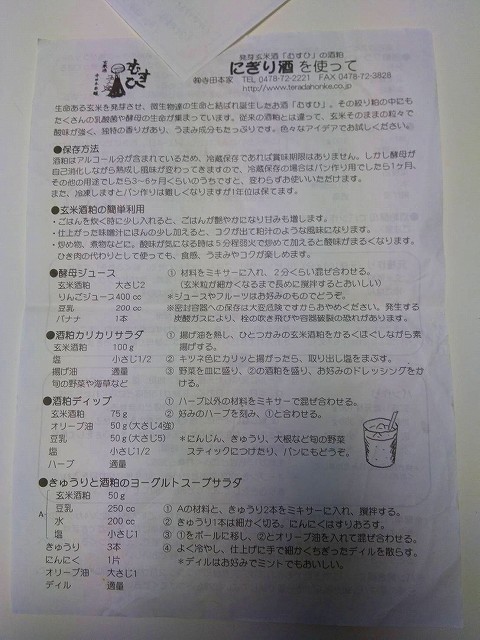 発芽玄米酒「むすひ」の酒粕
むすひ
にぎり酒 を使って
㈱寺田本家 TEL 0478-72-2221 FAX 0478-72-3828
http://www.teradahonke.co.jp/
生命ある玄米を発芽させ、微生物達の生命と結ばれ誕生したお酒「むすひ」。その絞り粕の中にも
たくさんの乳酸菌や酵母の生命が集まっています。従来の酒粕とは違って、玄米そのままの粒々で
酸味が強く、独特の香りがあり、うまみ成分もたっぷりです。色々なアイデアでお試しください。
●保存方法
酒粕はアルコール分が含まれているため、冷蔵保存であれば賞味期限はありません。しかし酵母が
自己消化しながら熟成し風味が変わってきますので、冷蔵保存の場合はパン作り用でしたら1ヶ月、
その他の用途でしたら3~6ヶ月くらいのうちですと、変わらずお使いいただけます。
また、冷凍しますとパン作りは難しくなりますが1年位は保てます。
●玄米酒粕の簡単利用
・ごはんを炊く時に少し入れると、ごはんが艶やかになり甘みも増します。
・仕上がった味噌汁にほんの少し加えると、コクが出て粕汁のような風味になります。
・炒め物、煮物などに。酸味が気になる時は5分程弱火で炒めて加えると酸味がまるくなります。
ひき肉の代わりとして使っても、食感、うまみやコクが楽しめます。
●酵母ジュース ① 材料をミキサーに入れ、2分くらい混ぜ合わせる。
玄米酒粕 大さじ2 (玄米粒が細かくなるまで長めに撹拌するとおいしい)
りんごジュース400 cc *ジュースやフルーツはお好みのものでどうぞ。
豆乳 200 cc ※密封容器への保存は大変危険ですからおやめください。発生する
バナナ 1本 炭酸ガスにより、栓の吹き飛びや容器破裂の恐れがあります。
●酒粕カリカリサラダ ① 揚げ油を熱し、ひとつかみの玄米酒粕をかるくほぐしながら素
玄米酒粕 100g 揚げする。
塩 小さじ1/2 ② キツネ色にカリッと揚がったら、取り出し塩をまぶす。
揚げ油 適量 ③ 野菜を皿に盛り、②の酒粕を盛り、お好みのドレッシングをか
旬の野菜や海草など ける。
●酒粕ディップ ① ハーブ以外の材料をミキサーで混ぜ合わせる。
玄米酒粕 75g ② 好みのハーブを刻み、①と合わせる。
オリーブ油 50g(大さじ4強)
豆乳 50g(大さじ5) *にんじん、きゅうり、大根など旬の野菜
塩 小さじ1/2 スティックにつけたり、パンにもどうぞ。
ハーブ 適量
●きゅうりと酒粕のヨーグルトスープサラダ
玄米酒粕 50g
豆乳 250 cc ① Aの材料と、きゅうり2本をミキサーに入れ、撹拌する。
A 水 200 cc ② きゅうり1本は細かく切る。にんにくはすりおろす。
塩 小さじ1 ③ ①をボールに移し、②とオリーブ油を入れて混ぜ合わせる。
きゅうり 3本 ④ よく冷やし、仕上げに手で細かくちぎったディルを散らす。
にんにく 1片 *ディルはお好みでミントでもおいしい。
オリーブ油 大さじ1
ディル 適量